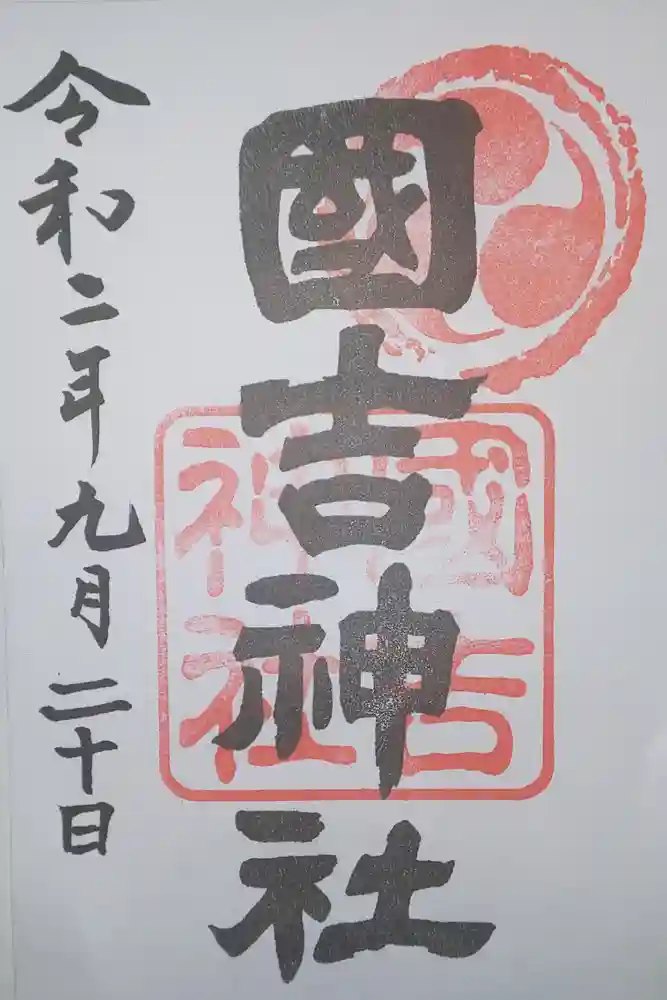 國吉神社
國吉
神社
令和二年九月二十日